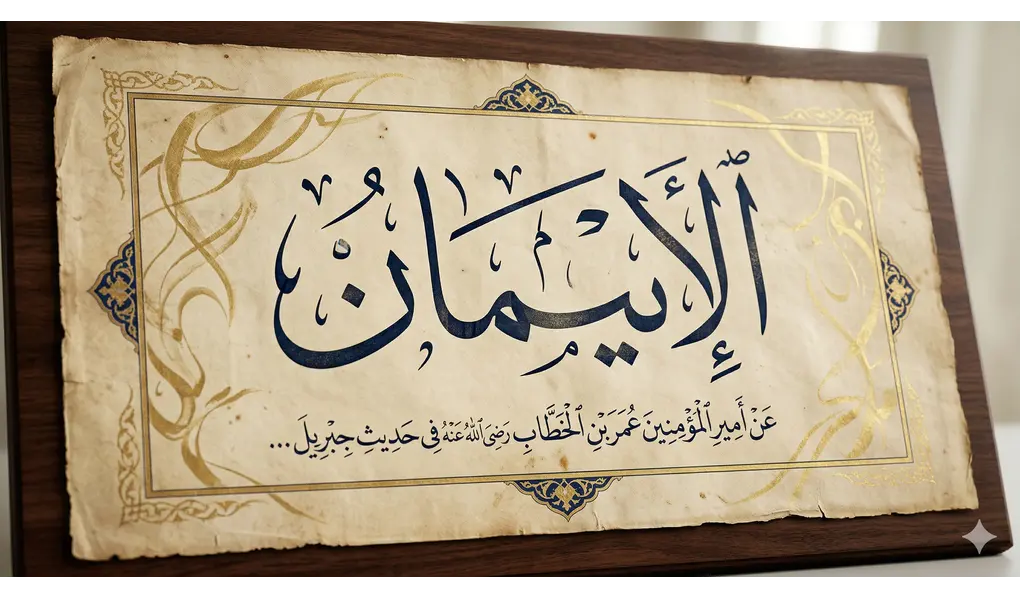 ٱلْإِيمَانُ
عَنْ أَمِيرِ ٱلْمُؤْمِنِينَ عُمَرَ بْنِ ٱلْخَطَّابِ رَضِيَ ٱللهُ عَنْهُ فِي حَدِيثِ جِبْرِيلَ ...